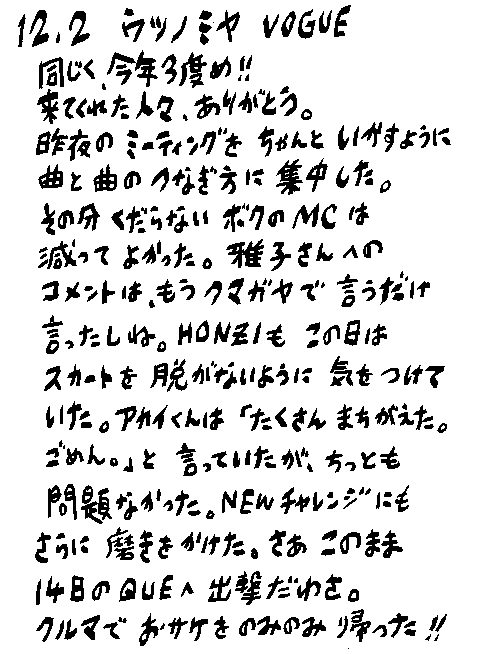 12.2 ウツノミヤ VOGUE
同じく、今年3度め!!
来てくれた人々、ありがとう。
昨夜のミーティングを ちゃんと いかすように
曲と曲のつなぎ方に 集中した。
その分 くだらない ボクのMCは
減って よかった。雅子さんへの
コメントは、もう クマガヤで 言うだけ
言ったしね。HONZIも この日は
スカートを 脱がないように 気をつけて
いた。アカイくんは「たくさん まちがえた。
ごめん。」と 言っていたが、ちっとも
問題なかった。NEWチャレンジにも
さらに 磨きをかけた。さあ このまま
14日のQUEへ 出撃だわさ。
クルマで おサケを のみのみ 帰った!!